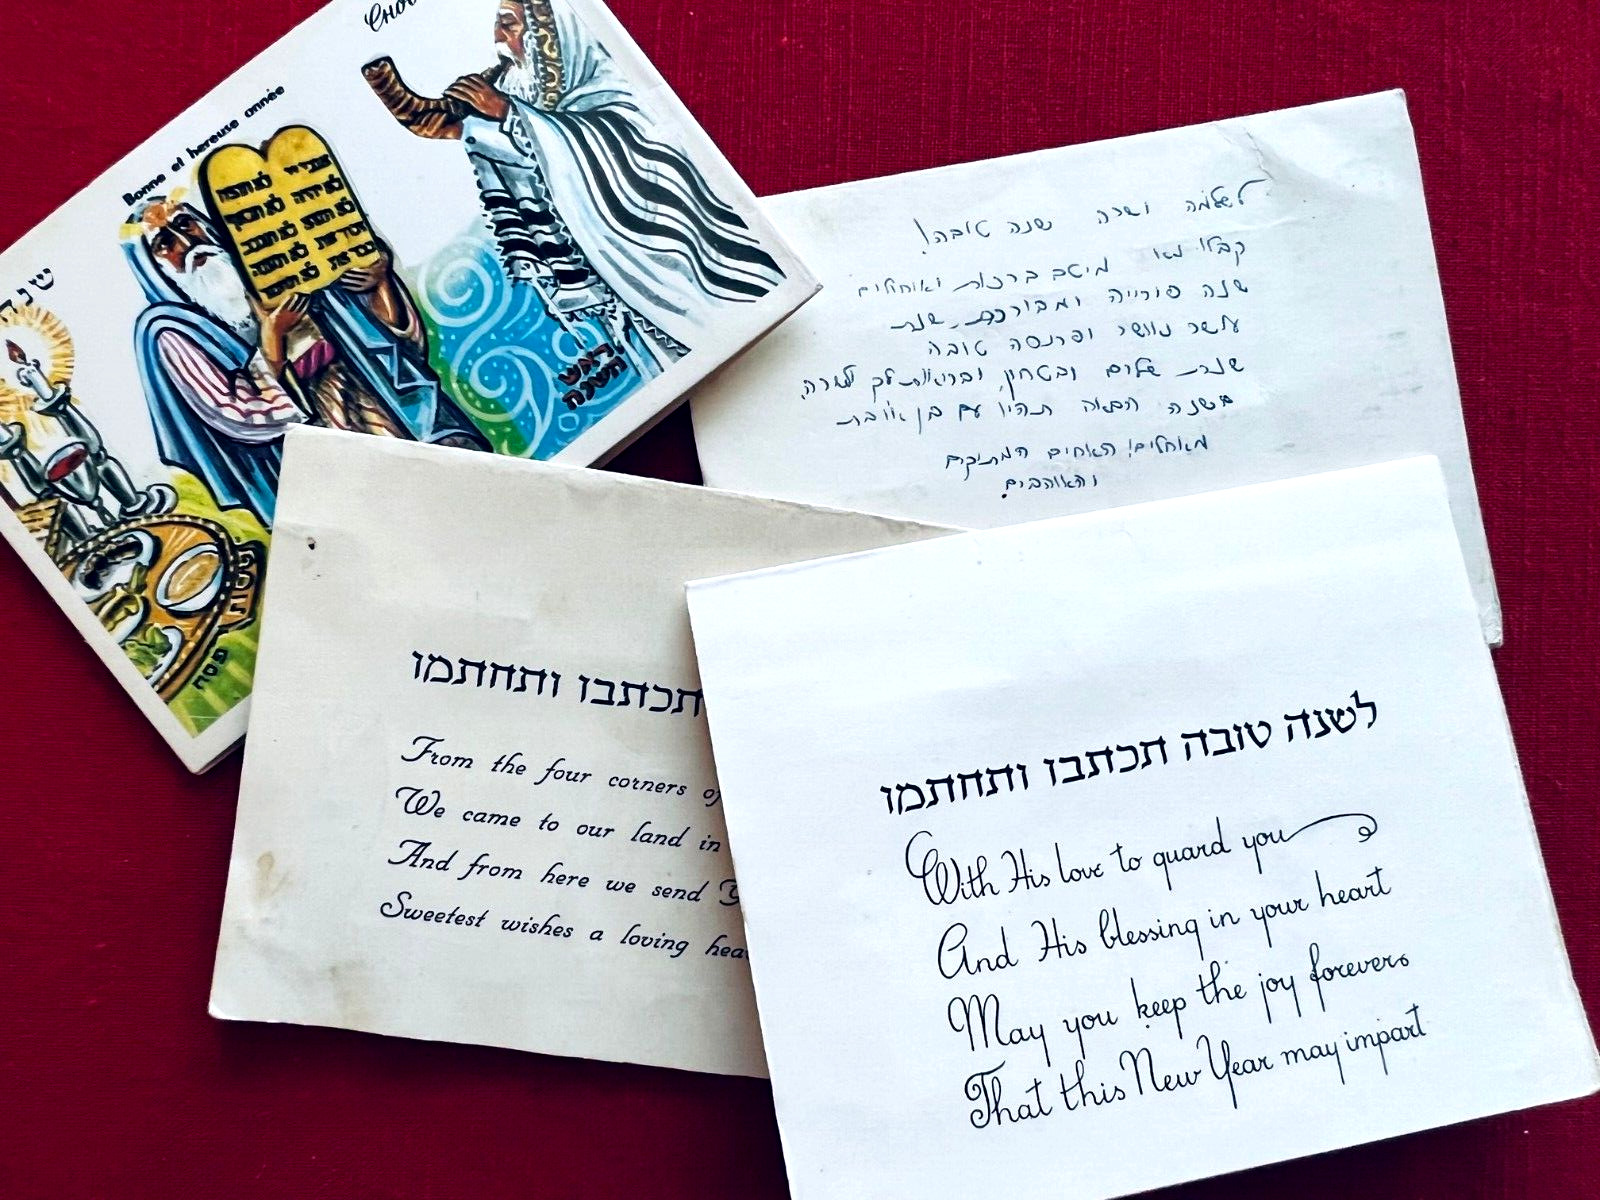 Bonne et hereuse année
שנה
לא תרצח
לא תנאף
לא תגנב
ראש
השנה
פסח
לשלמה ושרה שנה טובה!
קבלו נא מיטב ברכות ואיחולים
שנה פורייה ומבורכת, שנת
עושר ואושר ופרנסה טובה
שנת שלום ובטחון,
בשנה הבאה תהיו עם בן או בת
מאחלים: האחים המתוקים
והאוהבים.
תכתבו ותחתמו
From the four corners of
We came to our land in
And from here we send
Sweetest wishes a loving
לשנה טובה תכתבו ותחתמו
With His love to guard you
And His blessing in your heart
May you keep the joy forever
That this New Year may impart